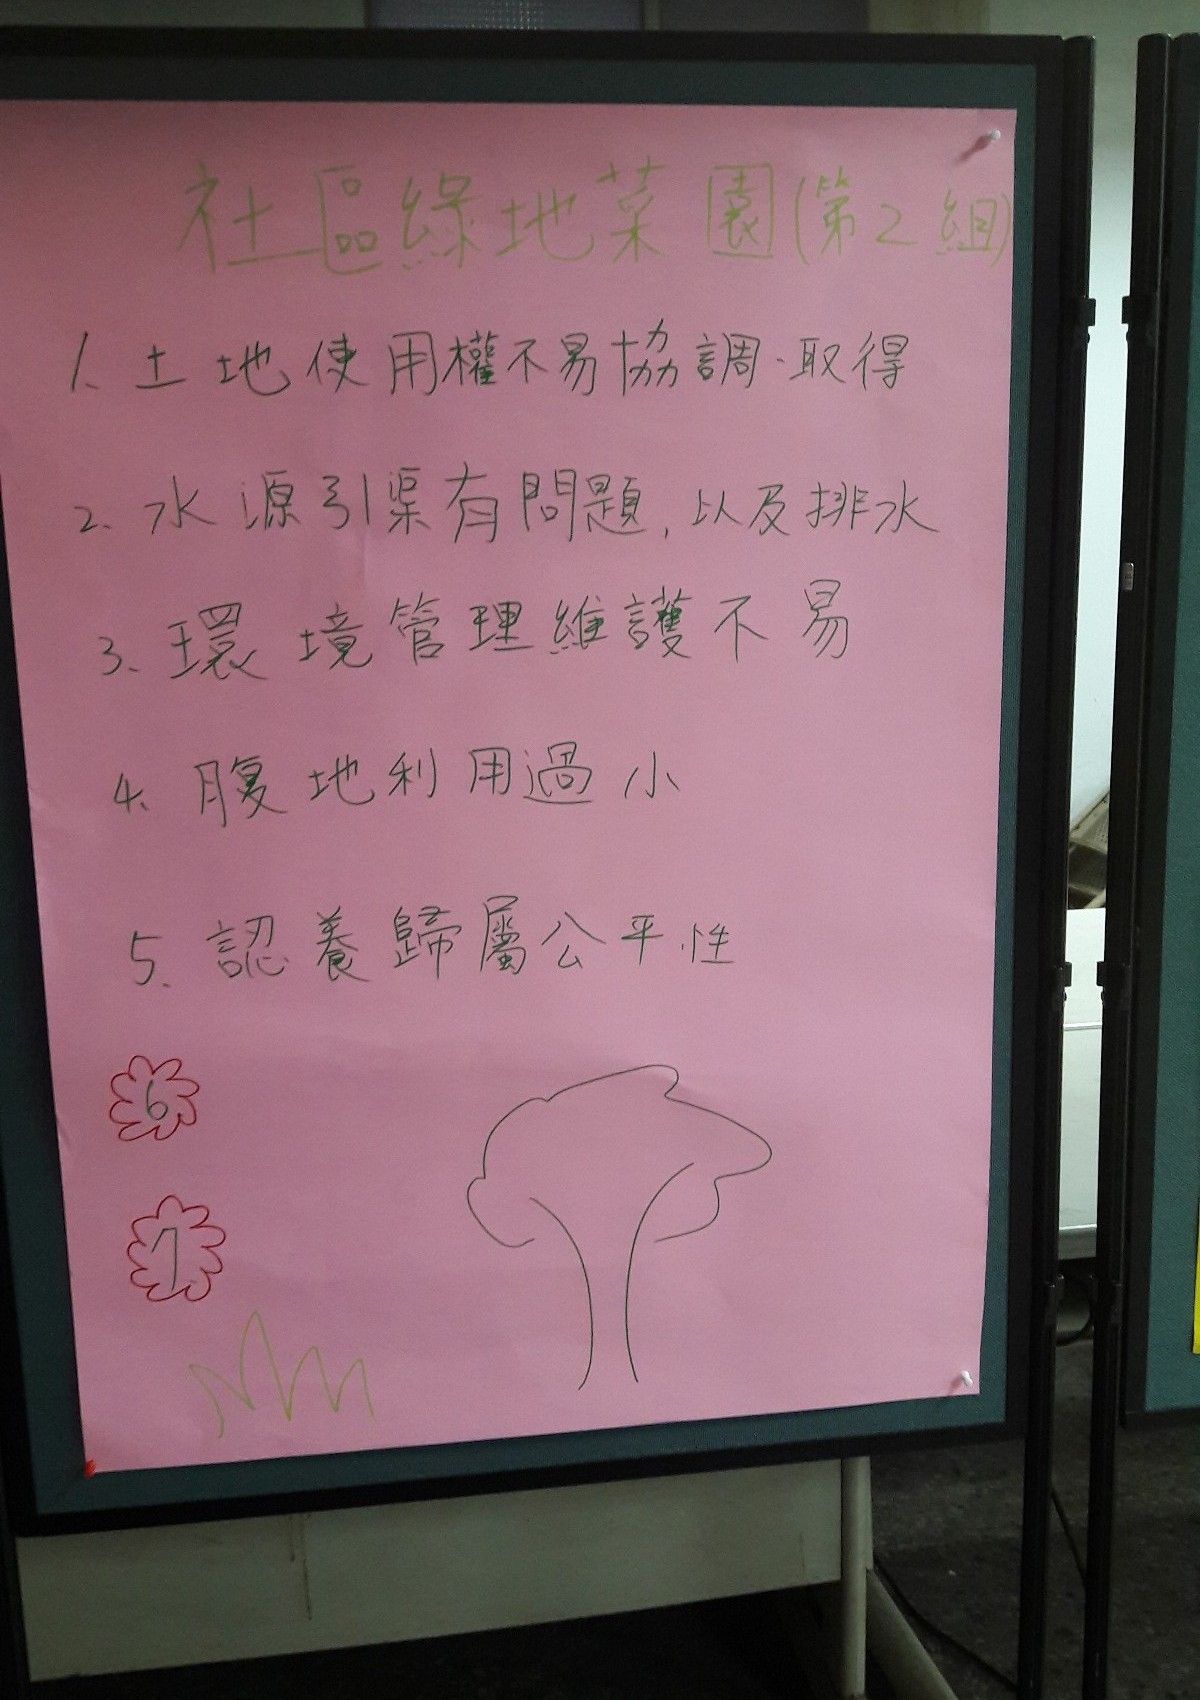 社區綠地菜園(第2組)
1. 土地使用權不易協調、取得
2. 水源引渠有問題, 以及排水
3. 環境管理維護不易
4. 腹地利用過小
5. 認養歸屬公平性
6
7